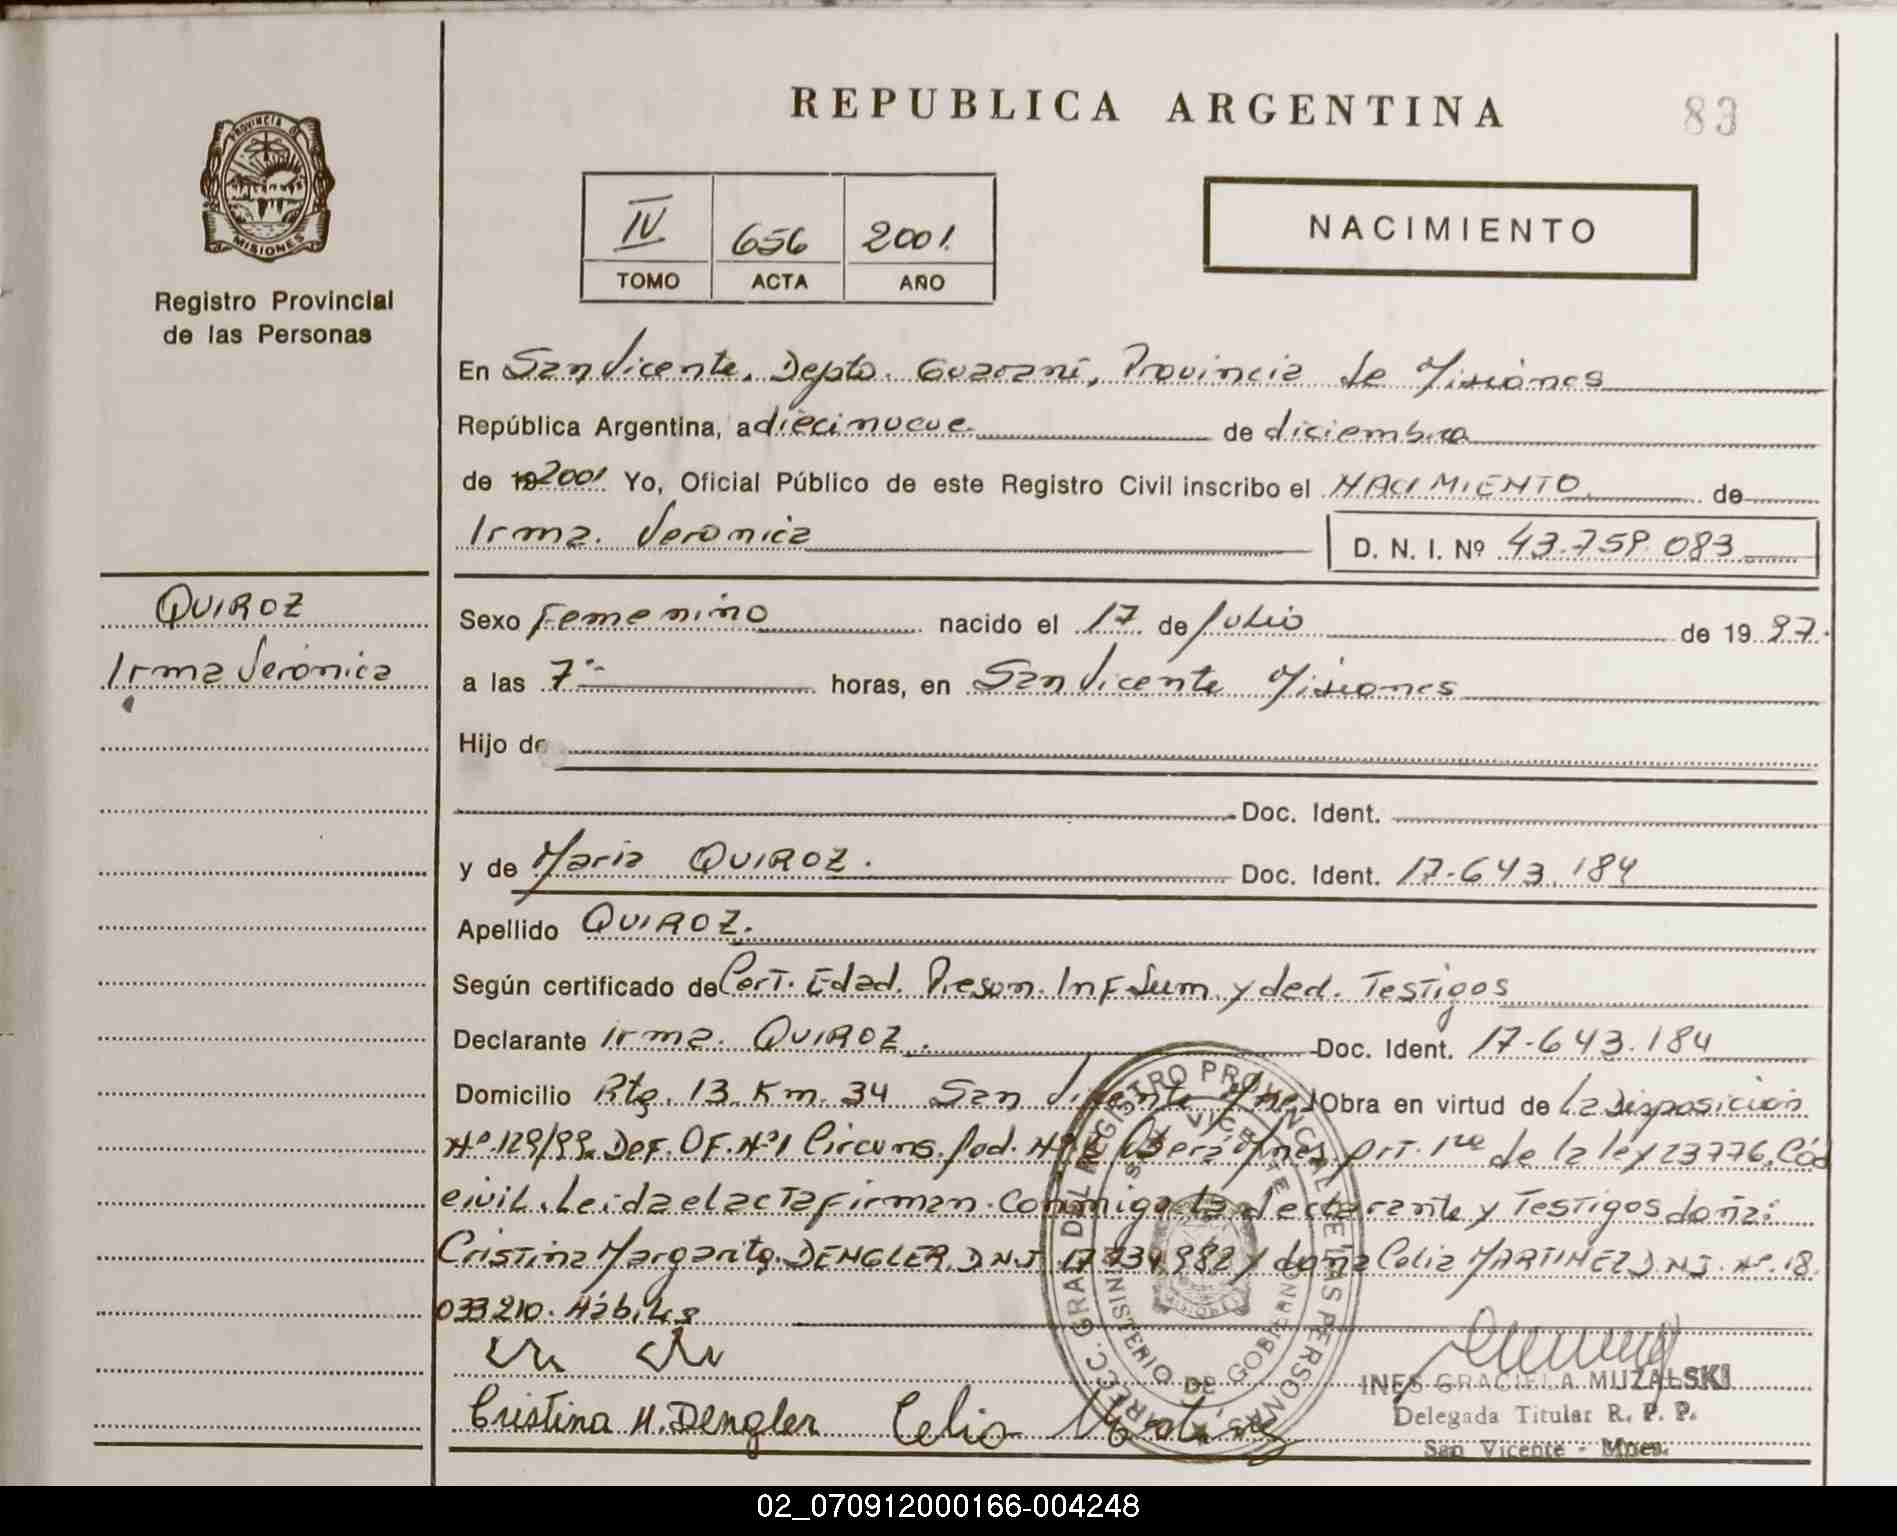 REPUBLICA ARGENTINA
83
PROVINCIA DE
MISIONES
Registro Provincial
de las Personas
IV 656 2001.
TOMO ACTA AÑO
NACIMIENTO
En San Vicente. Depto. Guaraní, Provincia de Misiones
República Argentina, a diecinueve de diciembre
de 19 2001 Yo, Oficial Público de este Registro Civil inscribo el NACIMIENTO de
Irma. Veronica
D. N. I. Nº 43.759.083
QUIROZ
Irma Verónica
Sexo Femenino nacido el 17 de Julio de 19 97.
a las 7 horas, en San Vicente Misiones
Hijo de
Doc. Ident.
y de Maria QUIROZ. Doc. Ident. 17-643.184
Apellido QUIROZ.
Según certificado de Cert. Edad. Presun. Inf Sum y decl. Testigos
Declarante Irma. QUIROZ. Doc. Ident. 17-643.184
Domicilio Rta. 13 Km. 34 San Vicente Mnes Obra en virtud de La Disposición
Nº 129/99. Def. OF. Nº1 Circuns. Jud. Nº Oberá Mnes. Art. 1ro de la ley 23776, Cód
civil. Leida el acta firman. Conmigo la declarante y Testigos doña:
Cristina Margarita. DENGLER. D N.I 17 934 982 y doña Celia MARTINEZ D.NI. Nº. 18.
033210. Hábiles
DIRECC. GRAL. DEL REGISTRO PROVINCIAL DE LAS PERSONAS
SAN VICENTE
MINISTERIO DE GOBIERNO
MISIONES
Cristina M. Dengler Celia
INES GRACIELA MUZALSKI
Delegada Titular R. P. P.
San Vicente - Mnes.
02_070912000166-004248